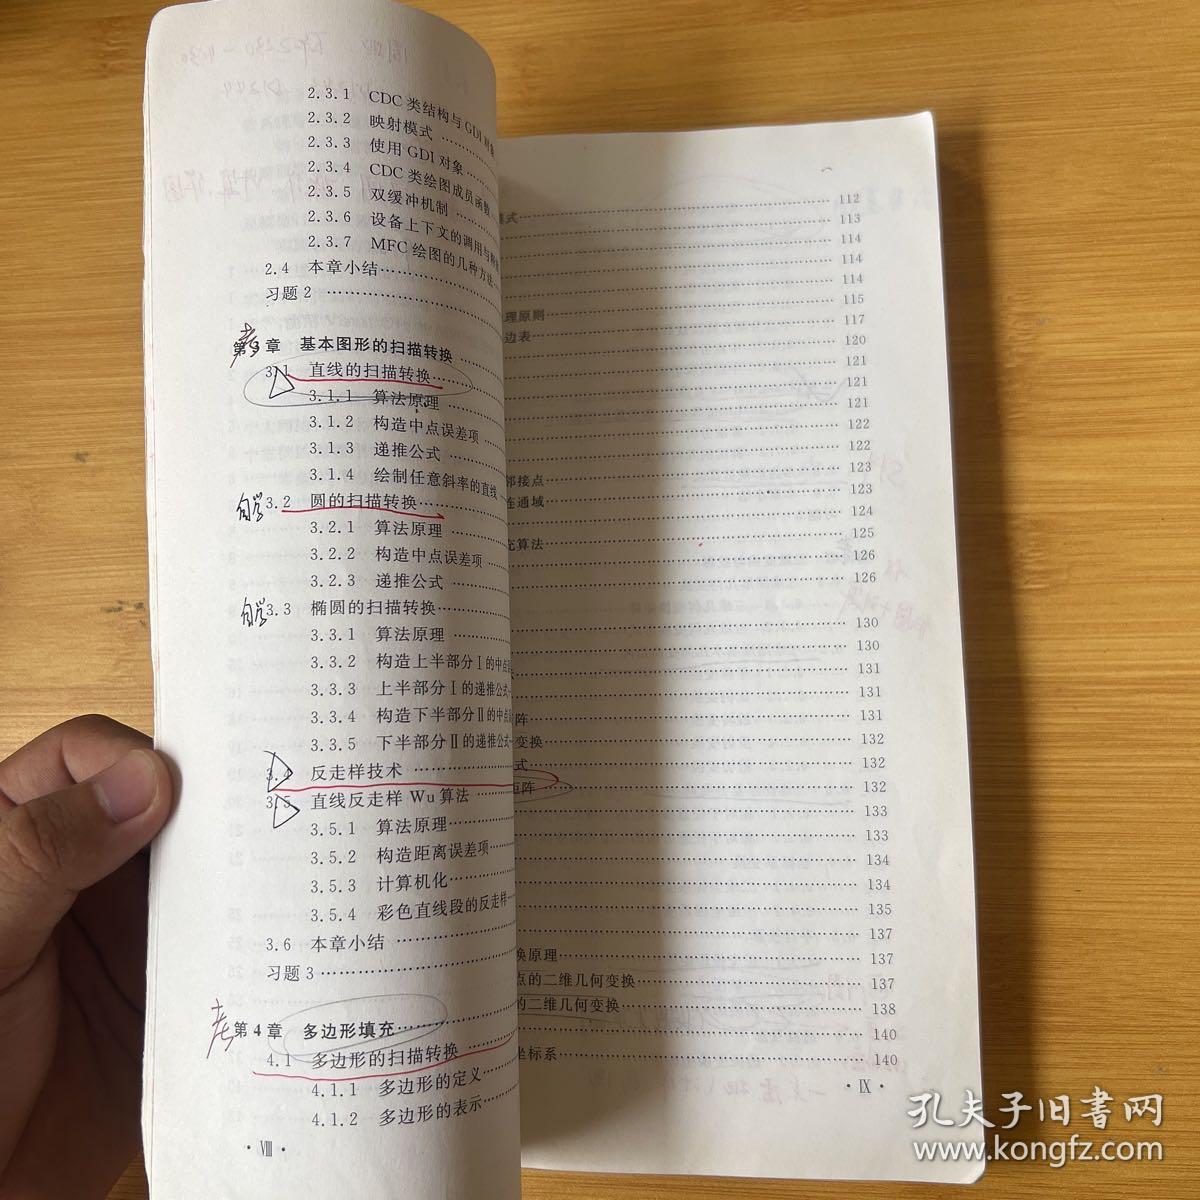 2.3.1 CDC 类结构与 GDI 对象
2.3.2 映射模式
2.3.3 使用 GDI 对象
2.3.4 CDC 类绘图成员函数
2.3.5 双缓冲机制
2.3.6 设备上下文的调用与
2.3.7 MFC 绘图的几种方法
2.4 本章小结
习题 2
考
第3章 基本图形的扫描转换
3.1 直线的扫描转换
3.1.1 算法原理
3.1.2 构造中点误差项
3.1.3 递推公式
3.1.4 绘制任意斜率的直线
自学
3.2 圆的扫描转换
3.2.1 算法原理
3.2.2 构造中点误差项
3.2.3 递推公式
自学
3.3 椭圆的扫描转换
3.3.1 算法原理
3.3.2 构造上半部分Ⅰ的中点
3.3.3 上半部分Ⅰ的递推公式
3.3.4 构造下半部分Ⅱ的中点
3.3.5 下半部分Ⅱ的递推公式
3.4 反走样技术
3.5 直线反走样 Wu 算法
3.5.1 算法原理
3.5.2 构造距离误差项
3.5.3 计算机化
3.5.4 彩色直线段的反走样
3.6 本章小结
习题 3
考
第4章 多边形填充
4.1 多边形的扫描转换
4.1.1 多边形的定义
4.1.2 多边形的表示
· Ⅷ ·
式 112
113
114
114
114
理原则 115
边表 117
120
121
121
121
122
122
邻接点 123
连通域 123
124
充算法 125
126
126
130
130
131
131
阵 131
变换 132
式 132
矩阵 132
133
133
134
134
135
137
换原理 137
点的二维几何变换 137
的二维几何变换 138
140
坐标系 140
· Ⅸ ·
孔夫子旧书网
www.kongfz.com